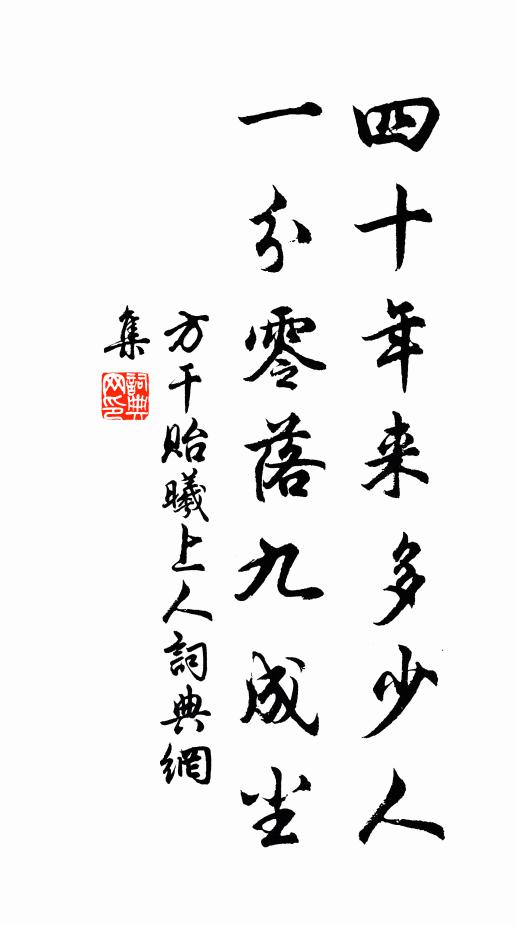 四十年来多少人
一分零落九成尘
方干贻曦上人詞典網
集
詞典
网印